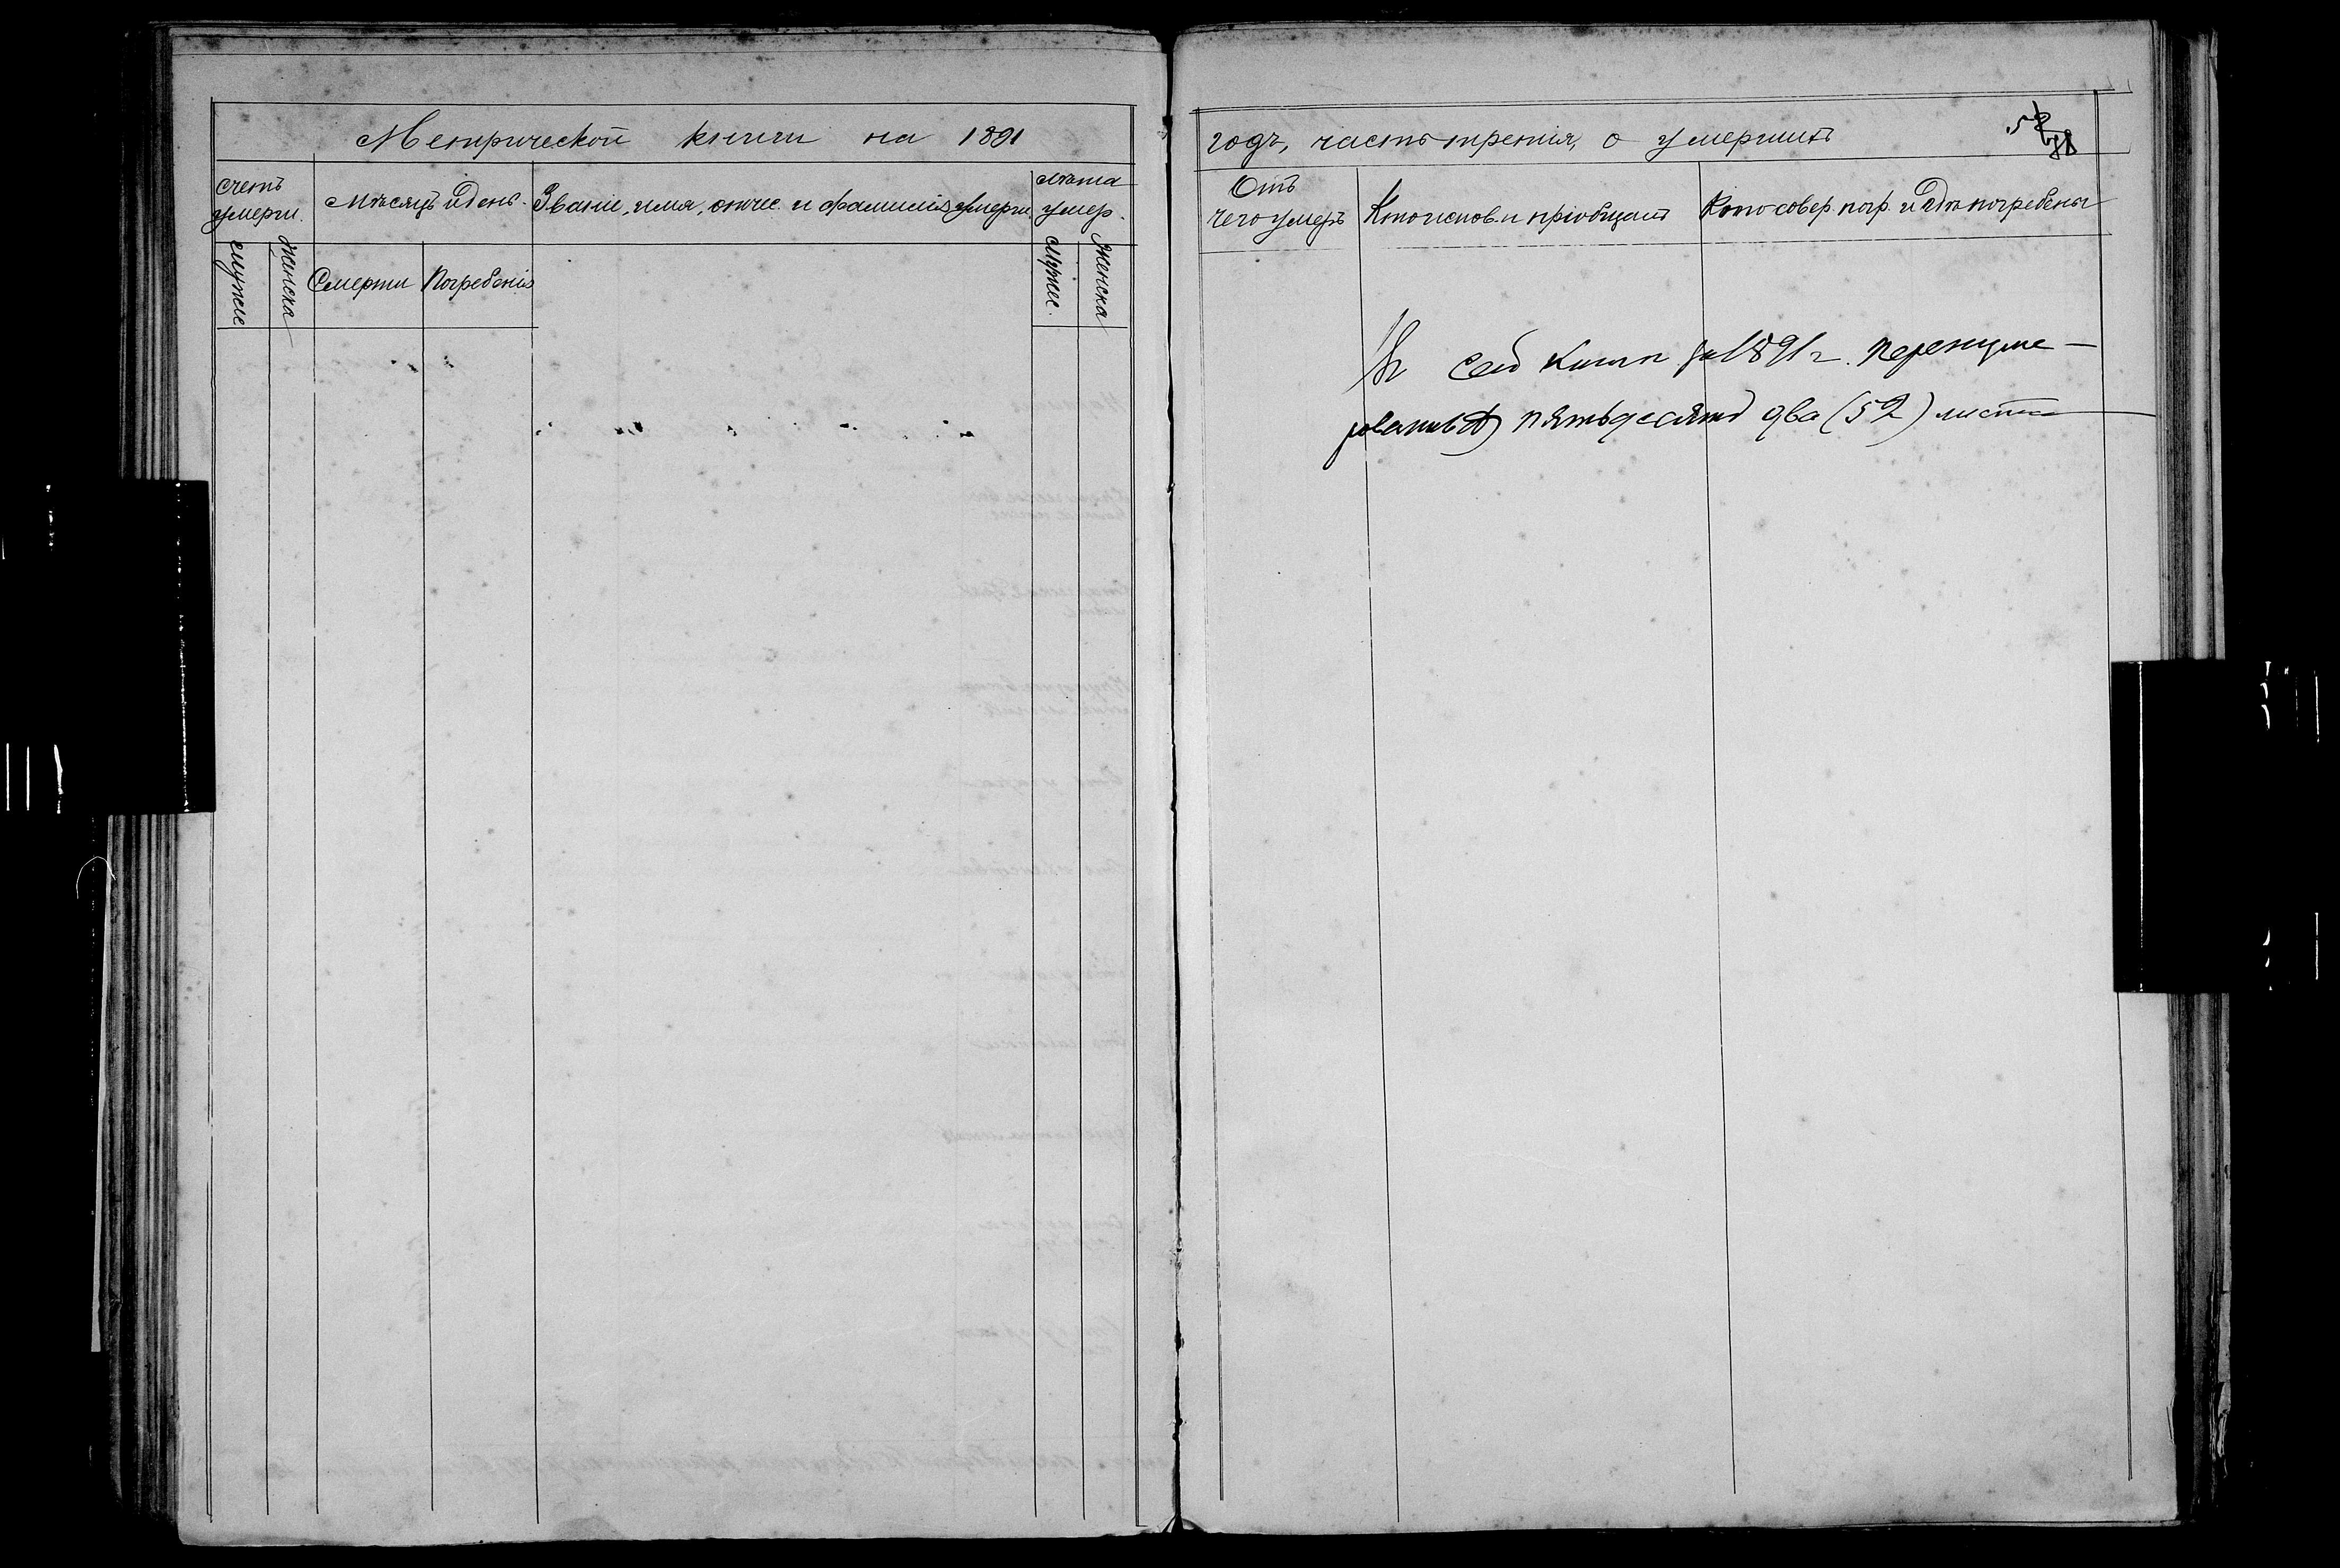 Метрической книги на 1891
счетъ
умерш.
Мѣсяцъ и день.
Званіе, имя, отчес. и фамилія умерш.
лѣта
умер.
мужес
женска
Смерти
Погребенія
мужес.
женска
годъ, часть третія, о умершихъ
52
Отъ
чего умеръ
Кто исповѣ. и пріобщалъ
Кто совер. погр. и гдѣ погребены
Въ сей книгѣ за 1891 г. перенуме-
рованныхъ пятьдесятъ два (52) листа